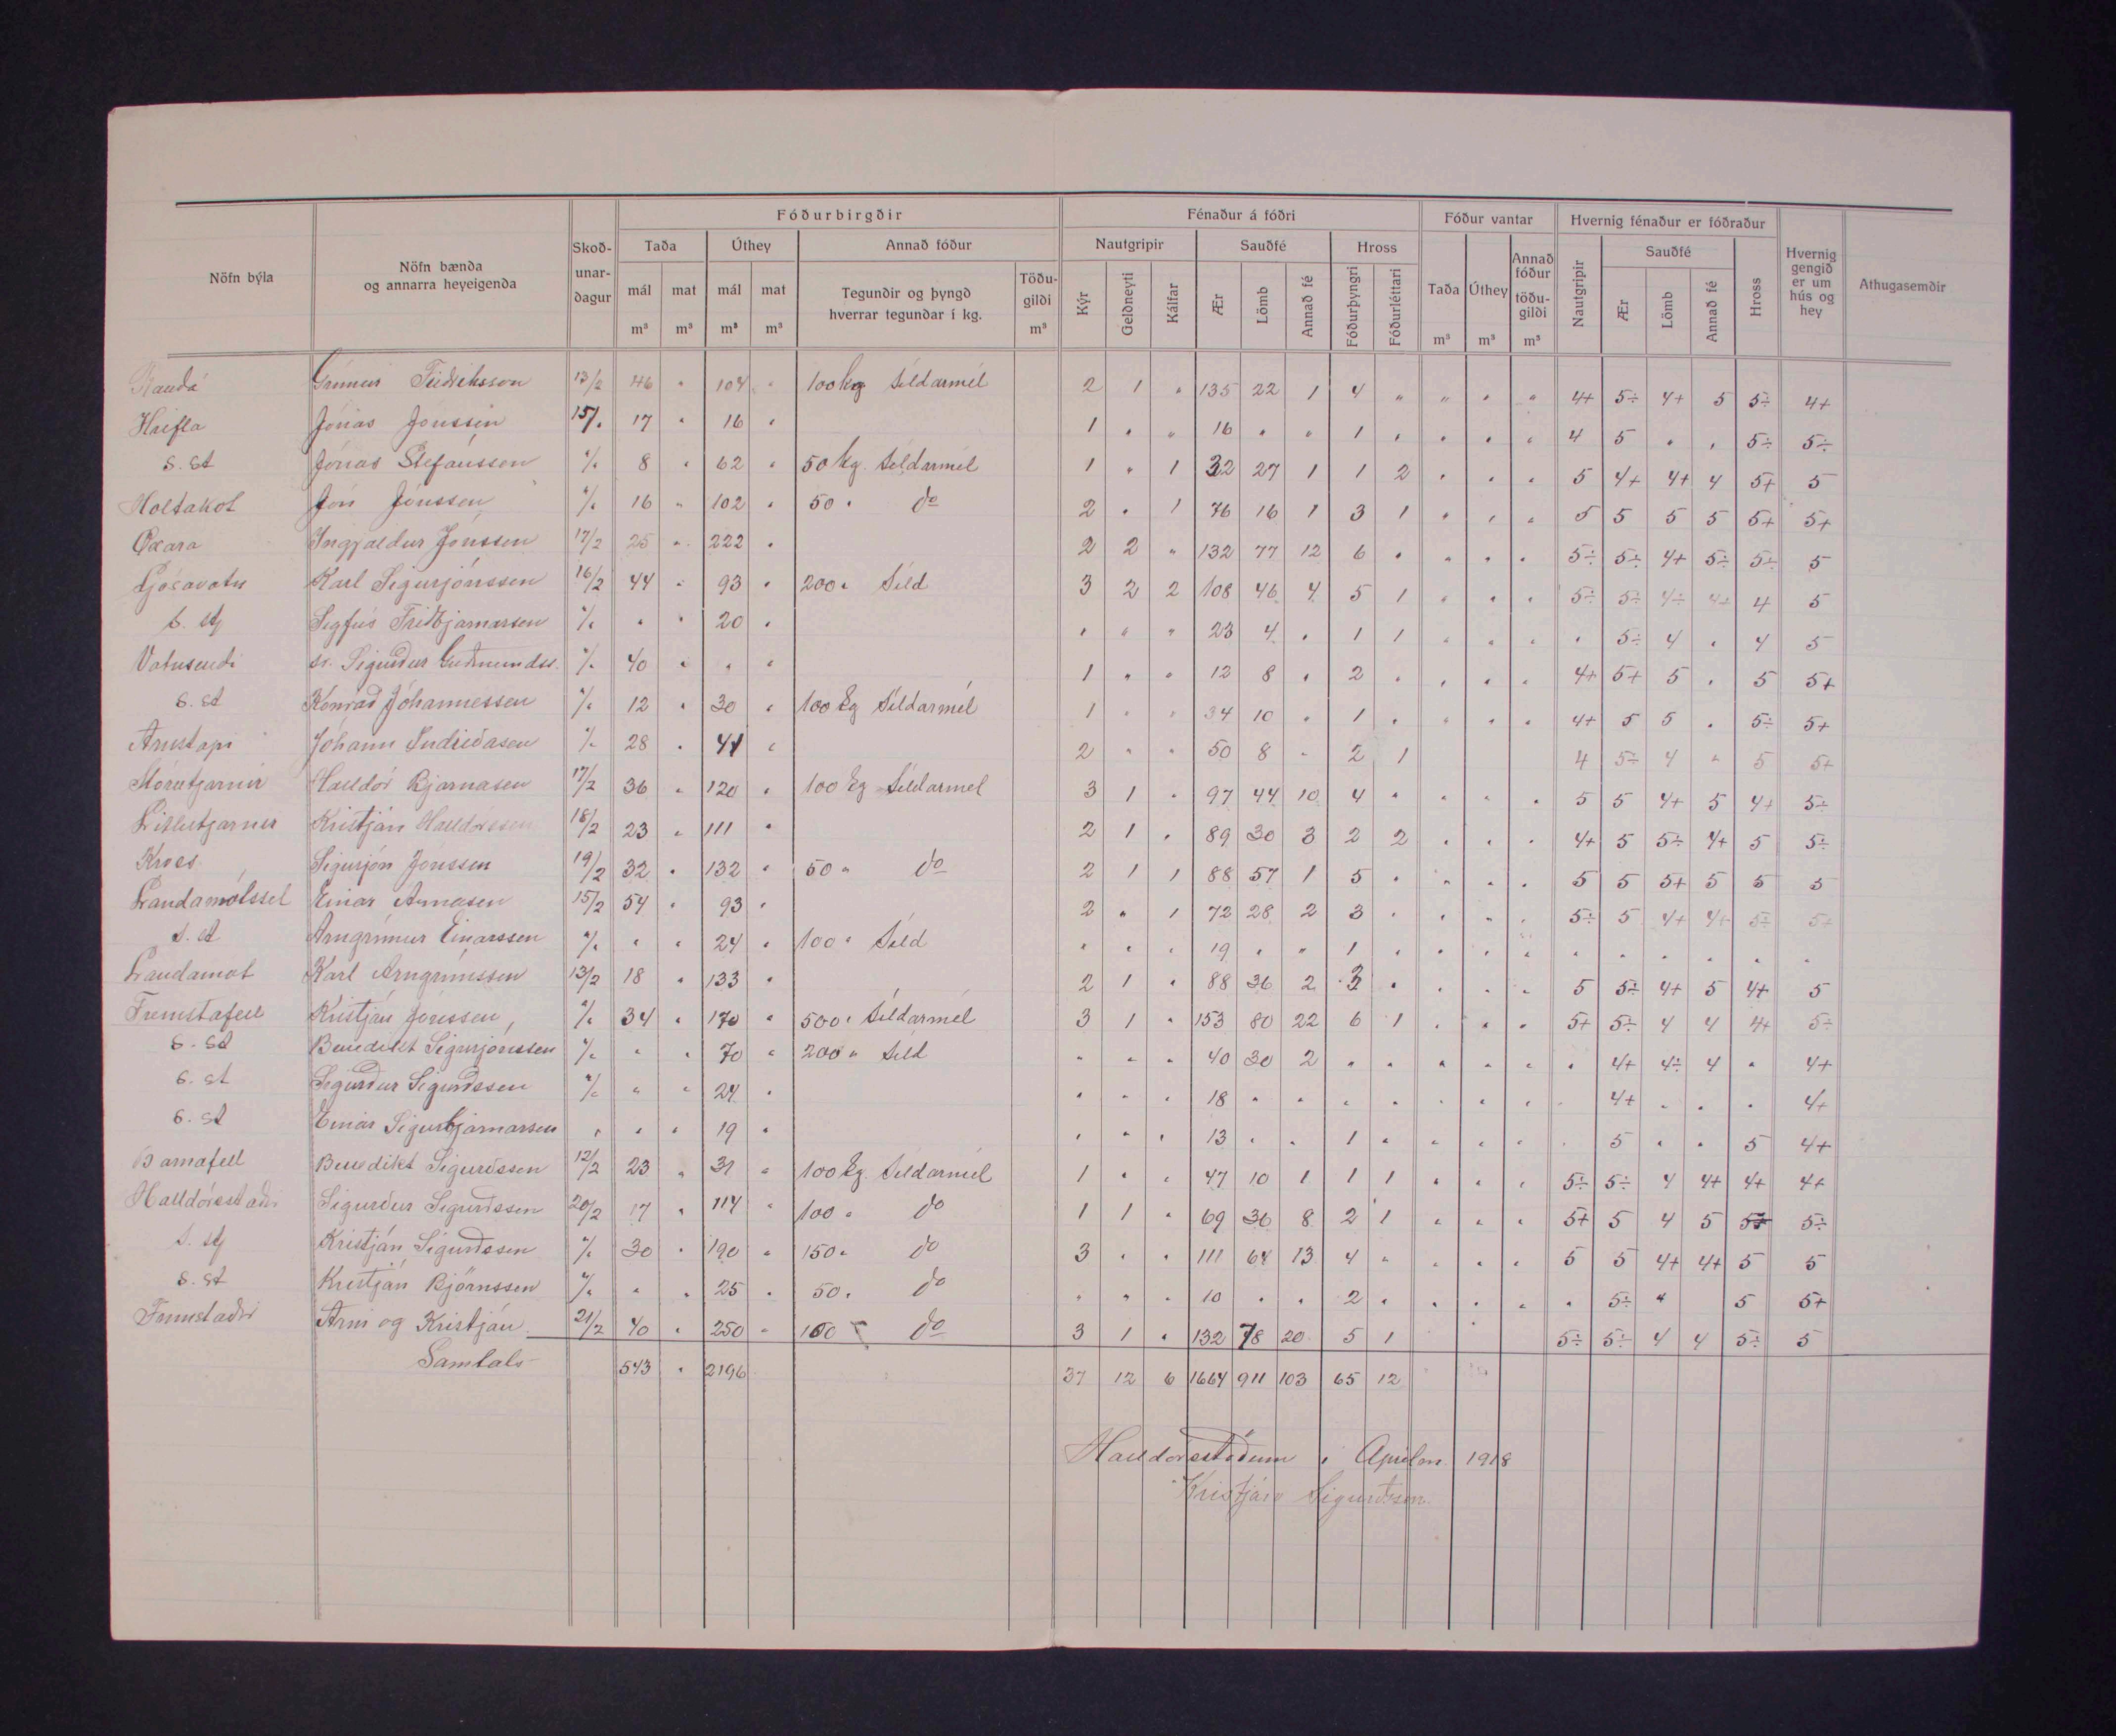 Fóðurbirgðir Fénaður á fóðri Fóður vantar Hvernig fénaður er fóðraður
Nöfn býla Nöfn bænda og annarra heyeigenda Skoð-unar-dagur Taða Úthey Annað fóður Nautgripir Sauðfé Hross Taða Úthey Annað fóður töðu-gildi Nautgripir Sauðfé Hross Hvernig gengið er um hús og hey Athugasemdir
mál mat mál mat Tegundir og þyngd hverrar tegundar í kg. Töðu-gildi Kýr Geldneyti Kálfar Ær Lömb Annað fé Fóðurþyngri Fóðurléttari Ær Lömb Annað fé
m³ m³ m³ m³ m³ m³ m³ m³
Rauðá Grímur Friðriksson 13/2 46 " 104 " 100 kg Síldarmél 2 1 " 135 22 1 4 " " " " 4+ 5÷ 4+ 5 5÷ 4+
Hrifla Jónas Jónsson 15/. 17 " 16 " 1 " " 16 " " 1 " " " " 4 5 " " 5÷ 5÷
S. st Jónas Stefánsson "/. 8 " 62 " 50 kg. Síldarmél 1 " 1 32 27 1 1 2 " " " 5 4+ 4+ 4 5+ 5
Holtakot Jón Jónsson "/. 16 " 102 " 50 " do 2 " 1 76 16 1 3 1 " " " 5 5 5 5 5+ 5+
Öxará Ingjaldur Jónsson 17/2 25 " 222 " 2 2 " 132 77 12 6 " " " " 5÷ 5÷ 4+ 5÷ 5÷ 5
Ljósavatn Karl Sigurjónsson 16/2 44 " 93 " 200 " Síld 3 2 2 108 46 4 5 1 " " " 5÷ 5÷ 4÷ 4+ 4 5
S. st Sigfús Friðbjarnarson "/. " " 20 " " " " 23 4 " 1 1 " " " " 5÷ 4 " 4 5
Vatnsendi sr. Sigurður Guðmundss. "/. 40 " " " 1 " " 12 8 " 2 " " " " 4+ 5+ 5 " 5 5+
S. st Konráð Jóhannesson "/. 12 " 30 " 100 kg Síldarmél 1 " " 34 10 " 1 " " " " 4+ 5 5 " 5÷ 5+
Arnstapi Jóhann Indriðason "/. 28 " 41 " 2 " " 50 8 " 2 1 4 5÷ 4 " 5 5+
Stórutjarnir Halldór Bjarnason 17/2 36 " 120 " 100 kg Síldarmél 3 1 " 97 44 10 4 " " " " 5 5 4+ 5 4+ 5÷
Litlutjarnir Kristján Halldórsson 18/2 23 " 111 " 2 1 " 89 30 3 2 2 " " " 4+ 5 5÷ 4+ 5 5÷
Kross Sigurjón Jónsson 19/2 32 " 132 " 50 " do 2 1 1 88 57 1 5 " " " " 5 5 5+ 5 5 5
Landamótssel Einar Árnason 15/2 54 " 93 " 2 " 1 72 28 2 3 " " " " 5÷ 5 4+ 4+ 5÷ 5÷
S. st Arngrímur Einarsson "/. " " 24 " 100 " Síld " " " 19 " " 1 " " " " " " " " " "
Landamót Karl Arngrímsson 13/2 18 " 133 " 2 1 " 88 36 2 3 " " " " 5 5÷ 4+ 5 4+ 5
Fremstafell Kristján Jónsson "/. 34 " 170 " 500 " Síldarmél 3 1 " 153 80 22 6 1 " " " 5+ 5÷ 4 4 4+ 5÷
S. st Benedikt Sigurjónsson "/. " " 70 " 200 " Síld " " " 40 30 2 " " " " " " 4+ 4÷ 4 " 4+
S. st Sigurður Sigurðsson "/. " " 24 " " " " 18 " " " " " " " " 4+ " " " 4+
S. st Einar Sigurbjarnarson " " " 19 " " " " 13 " " 1 " " " " " 5 " " 5 4+
Barnafell Benedikt Sigurðsson 12/2 23 " 31 " 100 kg. Síldarmél 1 " " 47 10 1 1 1 " " " 5÷ 5÷ 4 4+ 4+ 4+
Halldórsstaðir Sigurður Sigurðsson 20/2 17 " 114 " 100 " do 1 1 " 69 36 8 2 1 " " " 5+ 5 4 5 5+ 5÷
S. st Kristján Sigurðsson "/. 30 " 190 " 150 " do 3 " " 111 64 13 4 " " " " 5 5 4+ 4+ 5 5
S. st Kristján Björnsson "/. " " 25 " 50 " do " " " 10 " " 2 " " " " " 5÷ " 5 5+
Árni og Kristján 21/2 40 " 250 " 100 do 3 1 " 132 78 20 5 1 5÷ 5÷ 4 4 5÷ 5
Samtals 543 " 2196 37 12 6 1664 911 103 65 12
Halldórsstöðum í Apríl 1918
Kristján Sigurðsson